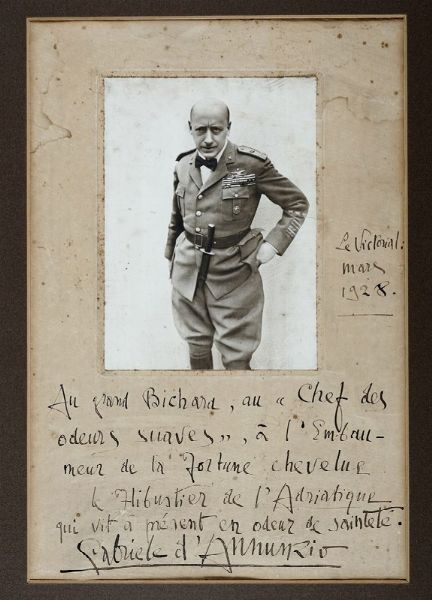 Le Victorial:
mars
1928.
Au grand Bichara, au « Chef des
odeurs suaves », à l'Embau-
meur de la Fortune chevelue
le Flibustier de l'Adriatique
qui vit à présent en odeur de sainteté.
Gabriele d'Annunzio